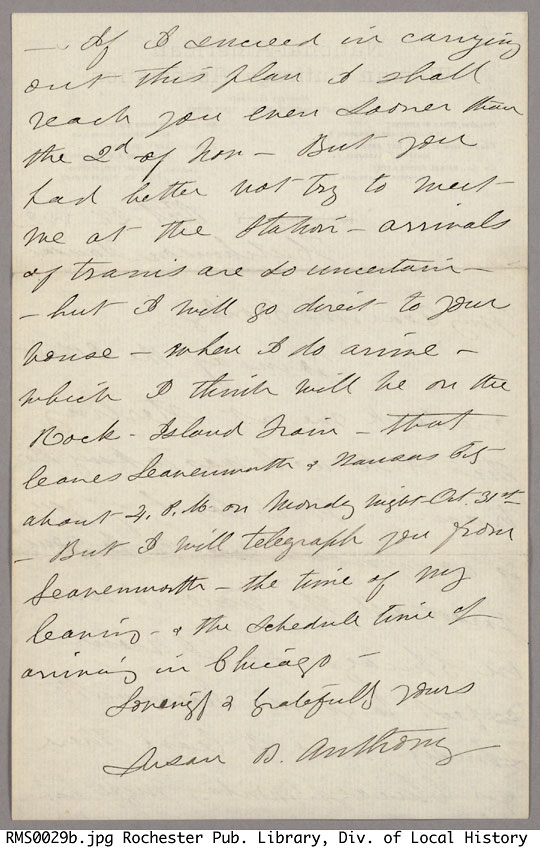 — If I succeed in carrying
out this plan I shall
reach you even sooner than
the 2d of Nov — But you
had better not try to meet
me at the Station — arrivals
of trains are so uncertain —
— but I will go direct to your
house — when I do arrive —
which I think will be on the
Rock-Island Train — that
leaves Leavenworth & Kansas City
about 4. P.M on Monday night Oct. 31st
— But I will telegraph you from
Leavenworth — the time of my
leaving — & the schedule time of
arriving in Chicago —
Lovingly & gratefully yours
Susan B. Anthony
RMS0029b.jpg Rochester Pub. Library, Div. of Local History